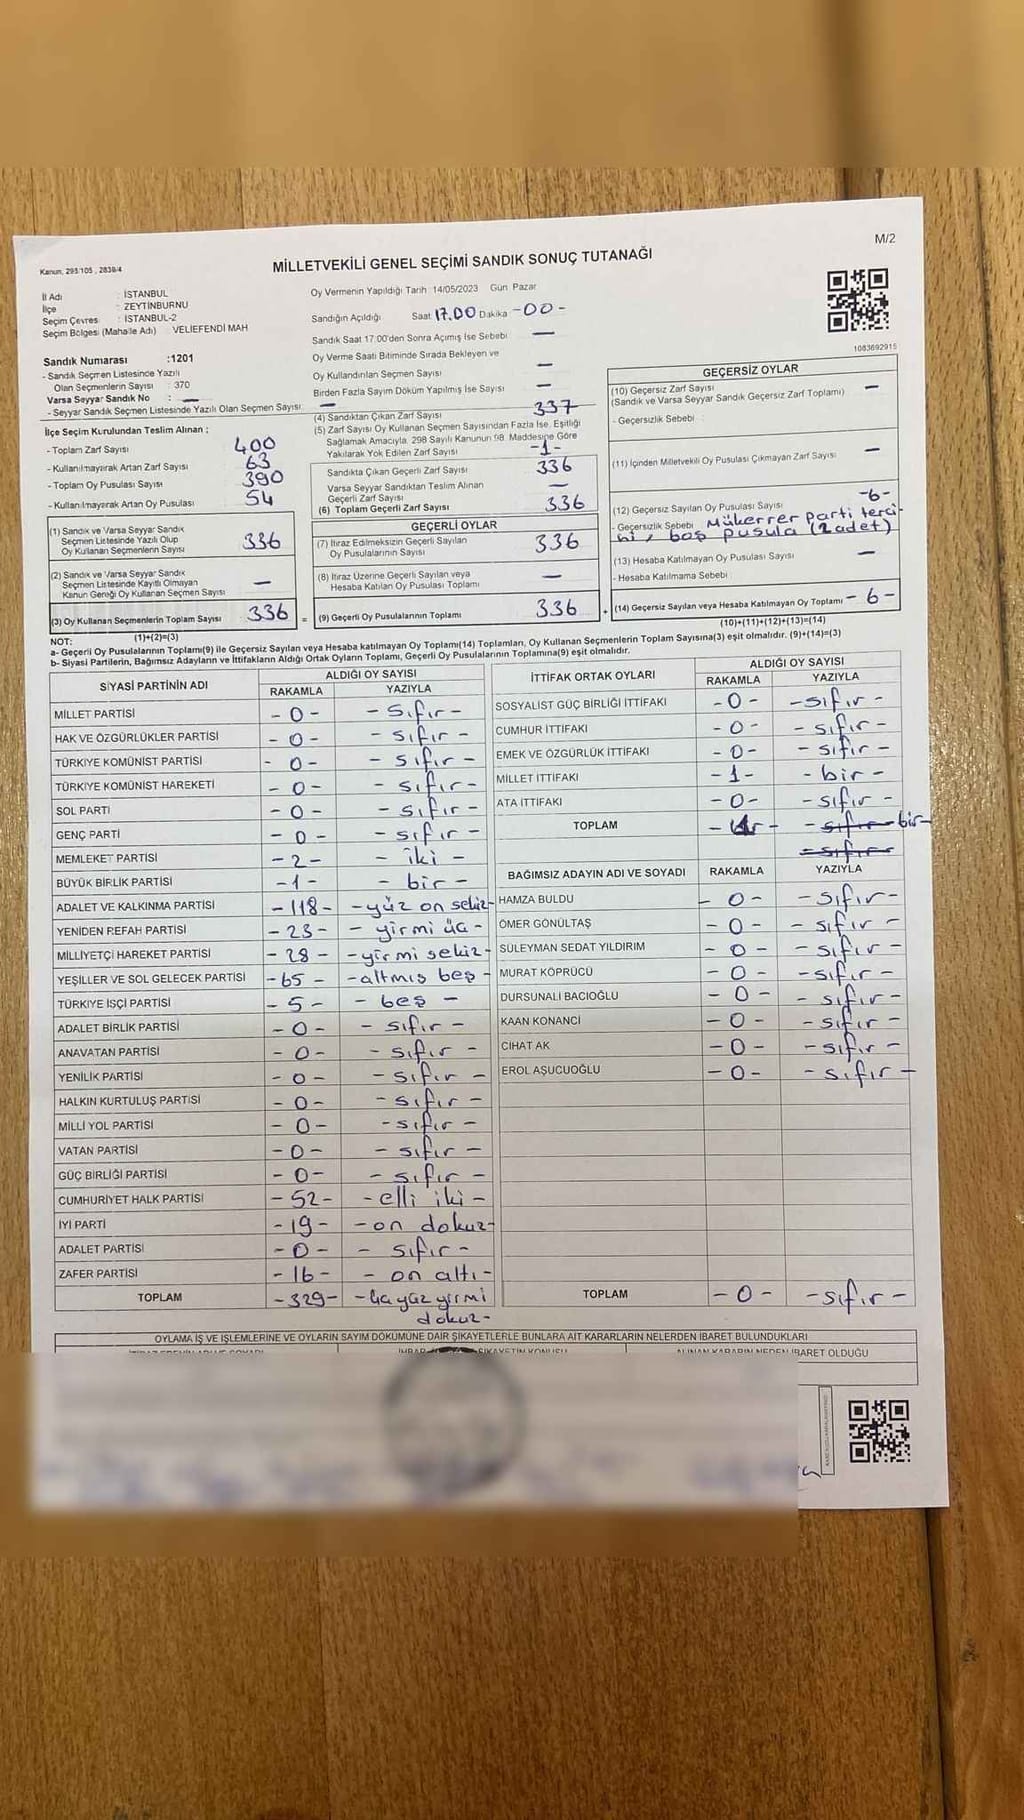 M/2
Kanun, 298/105 , 2839/4
MİLLETVEKİLİ GENEL SEÇİMİ SANDIK SONUÇ TUTANAĞI
İl Adı : İSTANBUL
İlçe : ZEYTİNBURNU
Seçim Çevres : İSTANBUL-2
Seçim Bölgesi (Mahalle Adı) VELİEFENDİ MAH
Oy Vermenin Yapıldığı Tarih 14/05/2023 Gün Pazar
Sandığın Açıldığı Saat 17.00 Dakika -00-
Sandık Saat 17:00'den Sonra Açımış İse Sebebi —
Oy Verme Saati Bitiminde Sırada Bekleyen ve
Oy Kullandırılan Seçmen Sayısı —
Birden Fazla Sayım Döküm Yapılmış İse Sayısı —
1083692915
Sandık Numarası :1201
- Sandık Seçmen Listesinde Yazılı
Olan Seçmenlerin Sayısı : 370
Varsa Seyyar Sandık No : —
- Seyyar Sandık Seçmen Listesinde Yazılı Olan Seçmen Sayısı: —
İlçe Seçim Kurulundan Teslim Alınan ;
- Toplam Zarf Sayısı 400
- Kullanılmayarak Artan Zarf Sayısı 63
- Toplam Oy Pusulası Sayısı 390
- Kullanılmayarak Artan Oy Pusulası 54
(1) Sandık ve Varsa Seyyar Sandık
Seçmen Listesinde Yazılı Olup
Oy Kullanan Seçmenlerin Sayısı 336
(2) Sandık ve Varsa Seyyar Sandık
Seçmen Listesinde Kayıtlı Olmayan
Kanun Gereği Oy Kullanan Seçmen Sayısı —
(3) Oy Kullanan Seçmenlerin Toplam Sayısı 336
(1)+(2)=(3)
(4) Sandıktan Çıkan Zarf Sayısı 337
(5) Zarf Sayısı Oy Kullanan Seçmen Sayısından Fazla İse, Eşitliği
Sağlamak Amacıyla, 298 Sayılı Kanunun 98. Maddesine Göre
Yakılarak Yok Edilen Zarf Sayısı -1-
Sandıkta Çıkan Geçerli Zarf Sayısı 336
Varsa Seyyar Sandıktan Teslim Alınan
Geçerli Zarf Sayısı —
(6) Toplam Geçerli Zarf Sayısı 336
GEÇERLİ OYLAR
(7) İtiraz Edilmeksizin Geçerli Sayılan
Oy Pusulalarının Sayısı 336
(8) İtiraz Üzerine Geçerli Sayılan veya
Hesaba Katılan Oy Pusulası Toplamı —
= (9) Geçerli Oy Pusulalarının Toplamı 336 +
GEÇERSİZ OYLAR
(10) Geçersiz Zarf Sayısı —
(Sandık ve Varsa Seyyar Sandık Geçersiz Zarf Toplamı)
- Geçersizlik Sebebi :
(11) İçinden Milletvekili Oy Pusulası Çıkmayan Zarf Sayısı —
(12) Geçersiz Sayılan Oy Pusulası Sayısı -6-
- Geçersizlik Sebebi Mükerrer parti terci-
hi, boş pusula (2 adet)
(13) Hesaba Katılmayan Oy Pusulası Sayısı —
- Hesaba Katılmama Sebebi
(14) Geçersiz Sayılan veya Hesaba Katılmayan Oy Toplamı - 6 -
(10)+(11)+(12)+(13)=(14)
NOT:
a- Geçerli Oy Pusulalarının Toplamı(9) ile Geçersiz Sayılan veya Hesaba katılmayan Oy Toplamı(14) Toplamları, Oy Kullanan Seçmenlerin Toplam Sayısına(3) eşit olmalıdır. (9)+(14)=(3)
b- Siyasi Partilerin, Bağımsız Adayların ve İttifakların Aldığı Ortak Oyların Toplamı, Geçerli Oy Pusulalarının Toplamına(9) eşit olmalıdır.
SİYASİ PARTİNİN ADI ALDIĞI OY SAYISI
RAKAMLA YAZIYLA
MİLLET PARTİSİ - 0 - - sıfır -
HAK VE ÖZGÜRLÜKLER PARTİSİ - 0 - - sıfır -
TÜRKİYE KOMÜNİST PARTİSİ - 0 - - sıfır -
TÜRKİYE KOMÜNİST HAREKETİ - 0 - - sıfır -
SOL PARTİ - 0 - - sıfır -
GENÇ PARTİ - 0 - - sıfır -
MEMLEKET PARTİSİ - 2 - - iki -
BÜYÜK BİRLİK PARTİSİ - 1 - - bir -
ADALET VE KALKINMA PARTİSİ - 118 - - yüz on sekiz -
YENİDEN REFAH PARTİSİ - 23 - - yirmi üç -
MİLLİYETÇİ HAREKET PARTİSİ - 28 - - yirmi sekiz -
YEŞİLLER VE SOL GELECEK PARTİSİ - 65 - - altmış beş -
TÜRKİYE İŞÇİ PARTİSİ - 5 - - beş -
ADALET BİRLİK PARTİSİ - 0 - - sıfır -
ANAVATAN PARTİSİ - 0 - - sıfır -
YENİLİK PARTİSİ - 0 - - sıfır -
HALKIN KURTULUŞ PARTİSİ - 0 - - sıfır -
MİLLİ YOL PARTİSİ - 0 - - sıfır -
VATAN PARTİSİ - 0 - - sıfır -
GÜÇ BİRLİĞİ PARTİSİ - 0 - - sıfır -
CUMHURİYET HALK PARTİSİ - 52 - - elli iki -
İYİ PARTİ - 19 - - on dokuz -
ADALET PARTİSİ - 0 - - sıfır -
ZAFER PARTİSİ - 16 - - on altı -
TOPLAM - 329 - - üçyüz yirmi
dokuz -
İTTİFAK ORTAK OYLARI ALDIĞI OY SAYISI
RAKAMLA YAZIYLA
SOSYALİST GÜÇ BİRLİĞİ İTTİFAKI - 0 - - sıfır -
CUMHUR İTTİFAKI - 0 - - sıfır -
EMEK VE ÖZGÜRLÜK İTTİFAKI - 0 - - sıfır -
MİLLET İTTİFAKI - 1 - - bir -
ATA İTTİFAKI - 0 - - sıfır -
TOPLAM - sıfır - bir -
sıfır
BAĞIMSIZ ADAYIN ADI VE SOYADI RAKAMLA YAZIYLA
HAMZA BULDU - 0 - - sıfır -
ÖMER GÖNÜLTAŞ - 0 - - sıfır -
SÜLEYMAN SEDAT YILDIRIM - 0 - - sıfır -
MURAT KÖPRÜCÜ - 0 - - sıfır -
DURSUNALİ BACIOĞLU - 0 - - sıfır -
KAAN KONANCI - 0 - - sıfır -
CİHAT AK - 0 - - sıfır -
EROL AŞUCUOĞLU - 0 - - sıfır -
TOPLAM - 0 - - sıfır -
OYLAMA İŞ VE İŞLEMLERİNE VE OYLARIN SAYIM DÖKÜMÜNE DAİR ŞİKAYETLERLE BUNLARA AİT KARARLARIN NELERDEN İBARET BULUNDUKLARI
ALINAN KARARIN NEDEN İBARET OLDUĞU